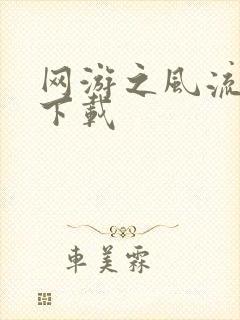 网游之風流
下載
車美霖